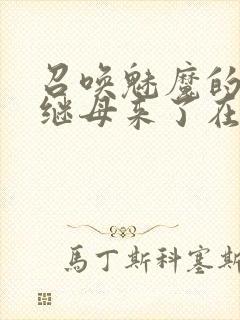 召唤魅魔的
继母来了在
馬丁斯科塞斯